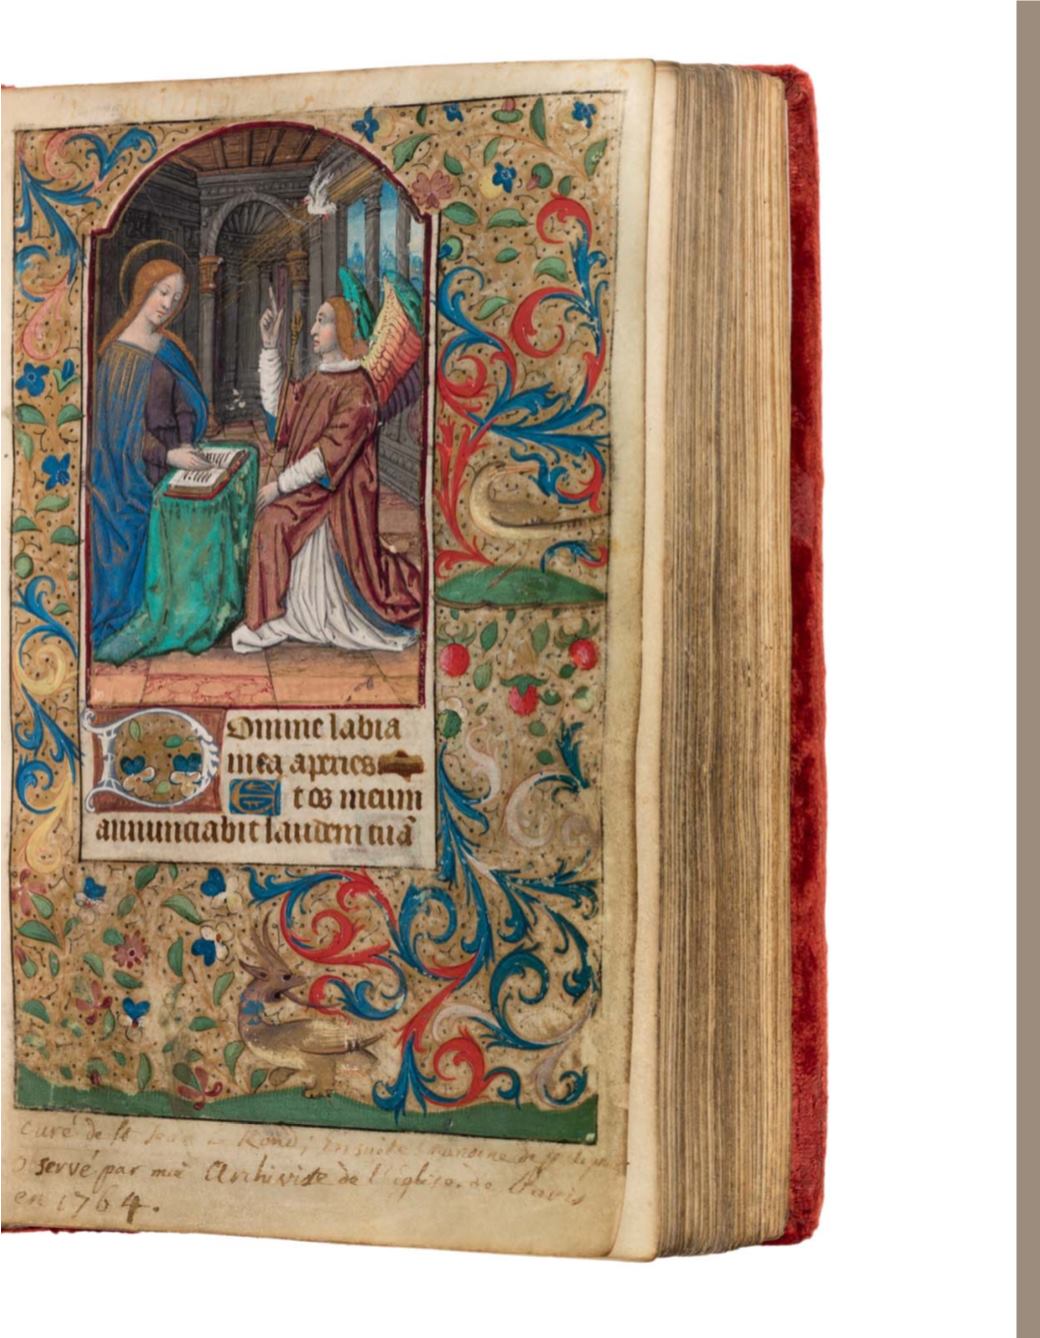 Domine labia
mea aperies
Et os meum
annunciabit laudem tuã
curé de St Jean Le Rond; ensuite de
observé par moi Archiviste de l'Eglise de Paris
en 1764.